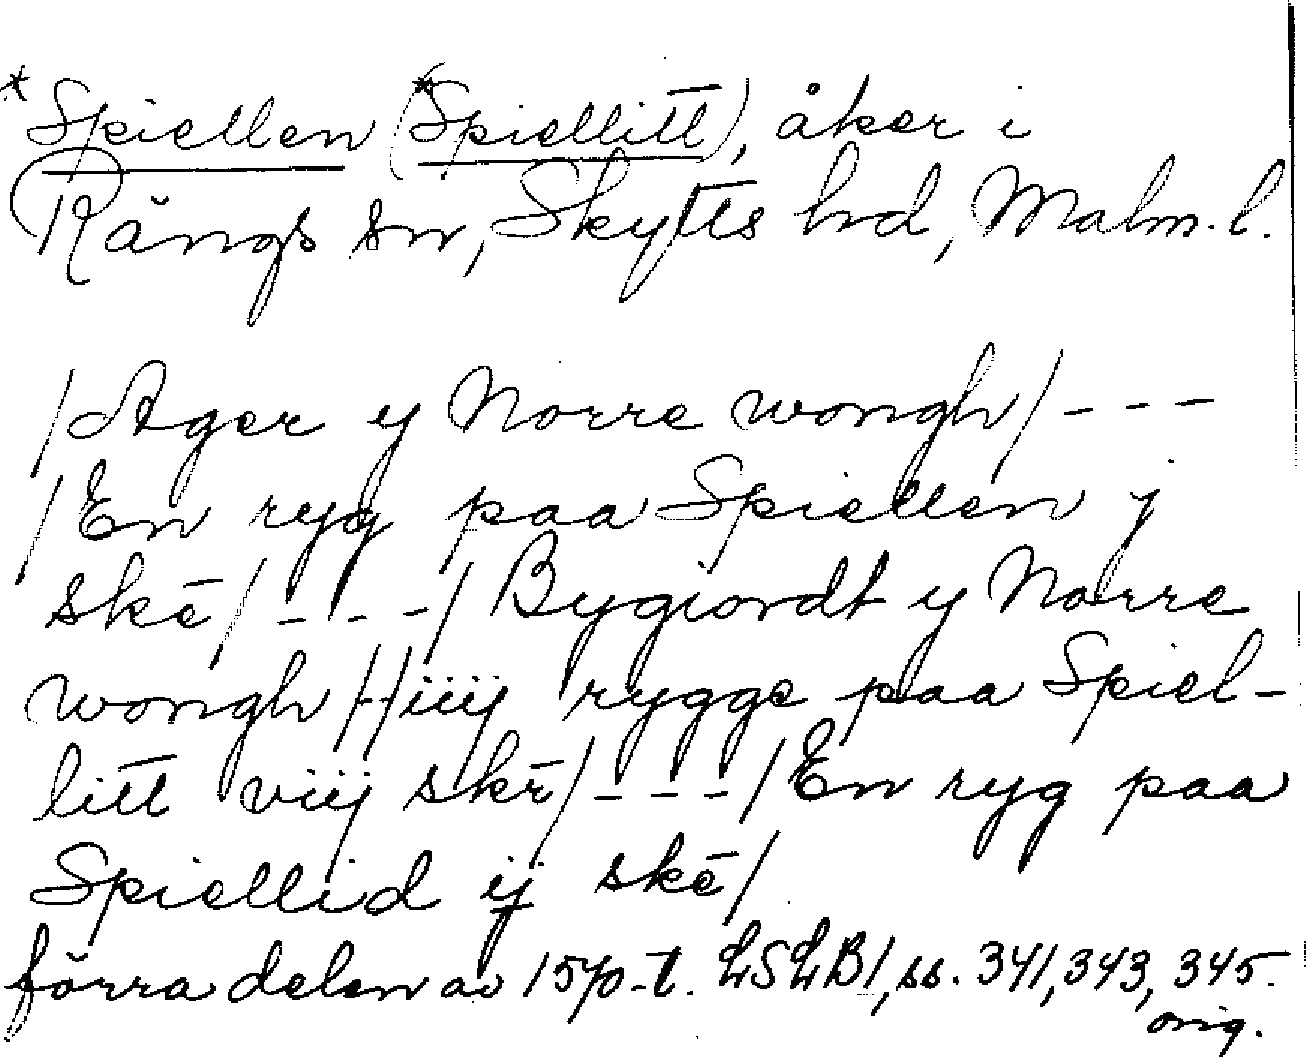 *Spiellen (*Spiellitt), åker i
Rängs sn, Skytts hd, Malm. l.
/Ager y Norre wongh/ - - -
/En ryg paa Spiellen j
skē/ - - - / Bygiordt y Norre
wongh/ /iiij rygge paa Spiel-
litt viij skē/ - - - /En ryg paa
Spiellid ij skē/
förra delen av 1570-t. LSLB1, ss. 341, 343, 345.
orig.